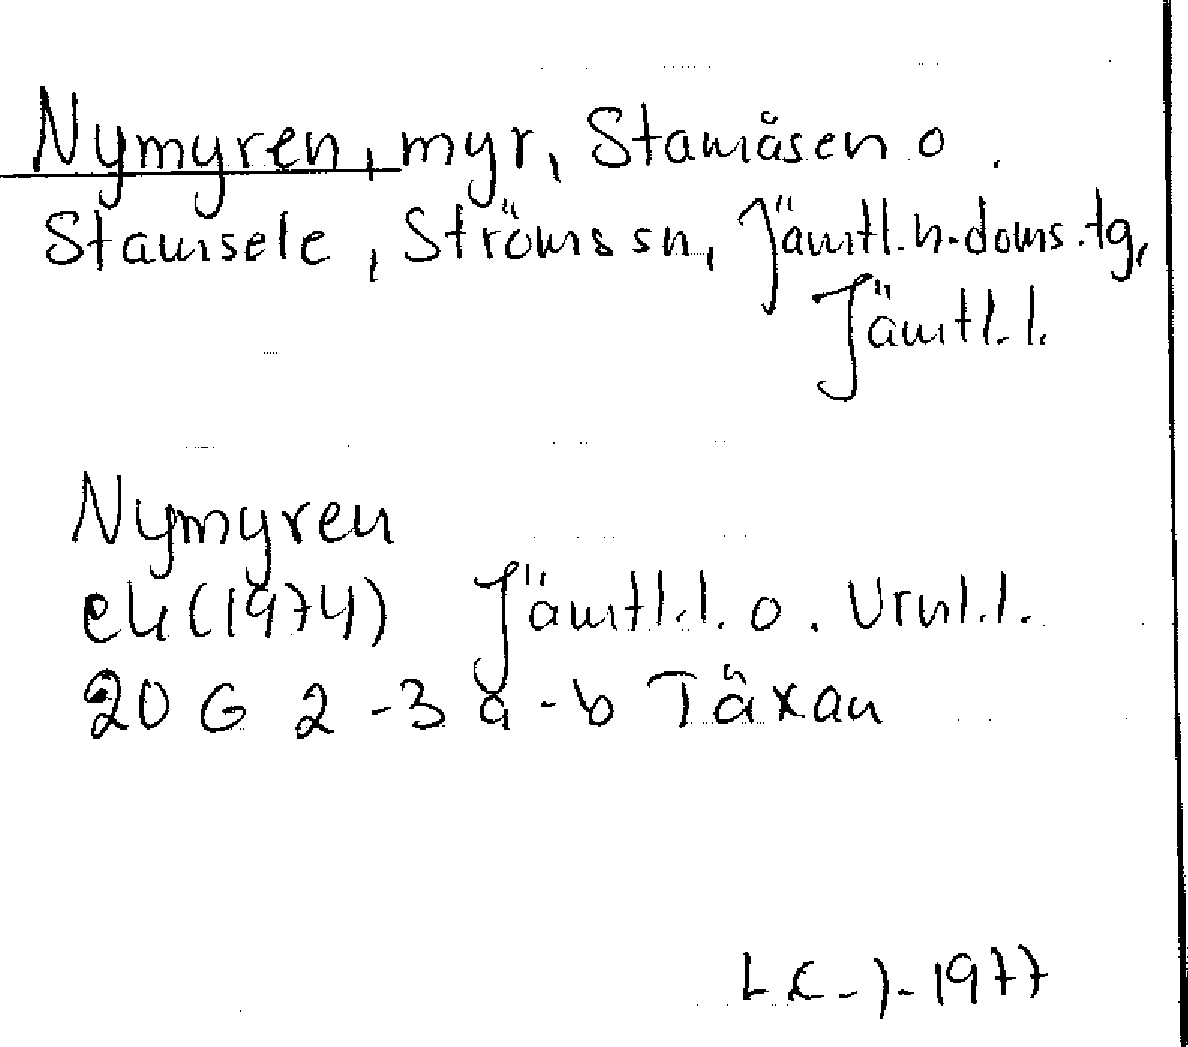 Nymyren, myr, Stamåsen o.
Stamsele, Ströms sn, Jämtl.n.doms.tg,
Jämtl.l.
Nymyren
ek(1974) Jämtl.l. o. Vrnl.l.
20 G 2-3 a-b Täxan
1977